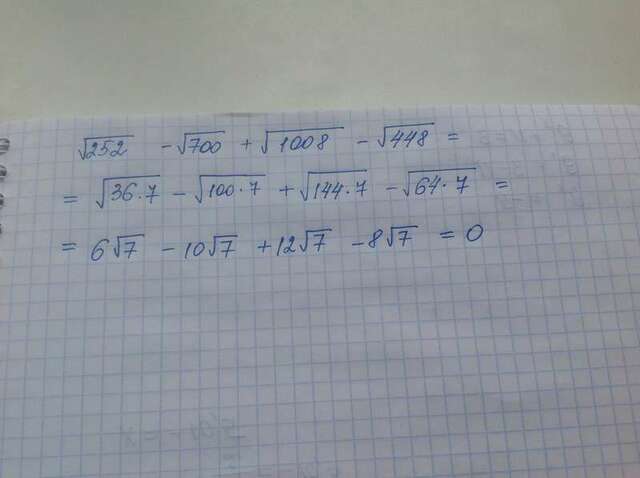 √252 - √700 + √1008 - √448 =
= √36·7 - √100·7 + √144·7 - √64·7 =
= 6√7 - 10√7 + 12√7 - 8√7 = 0